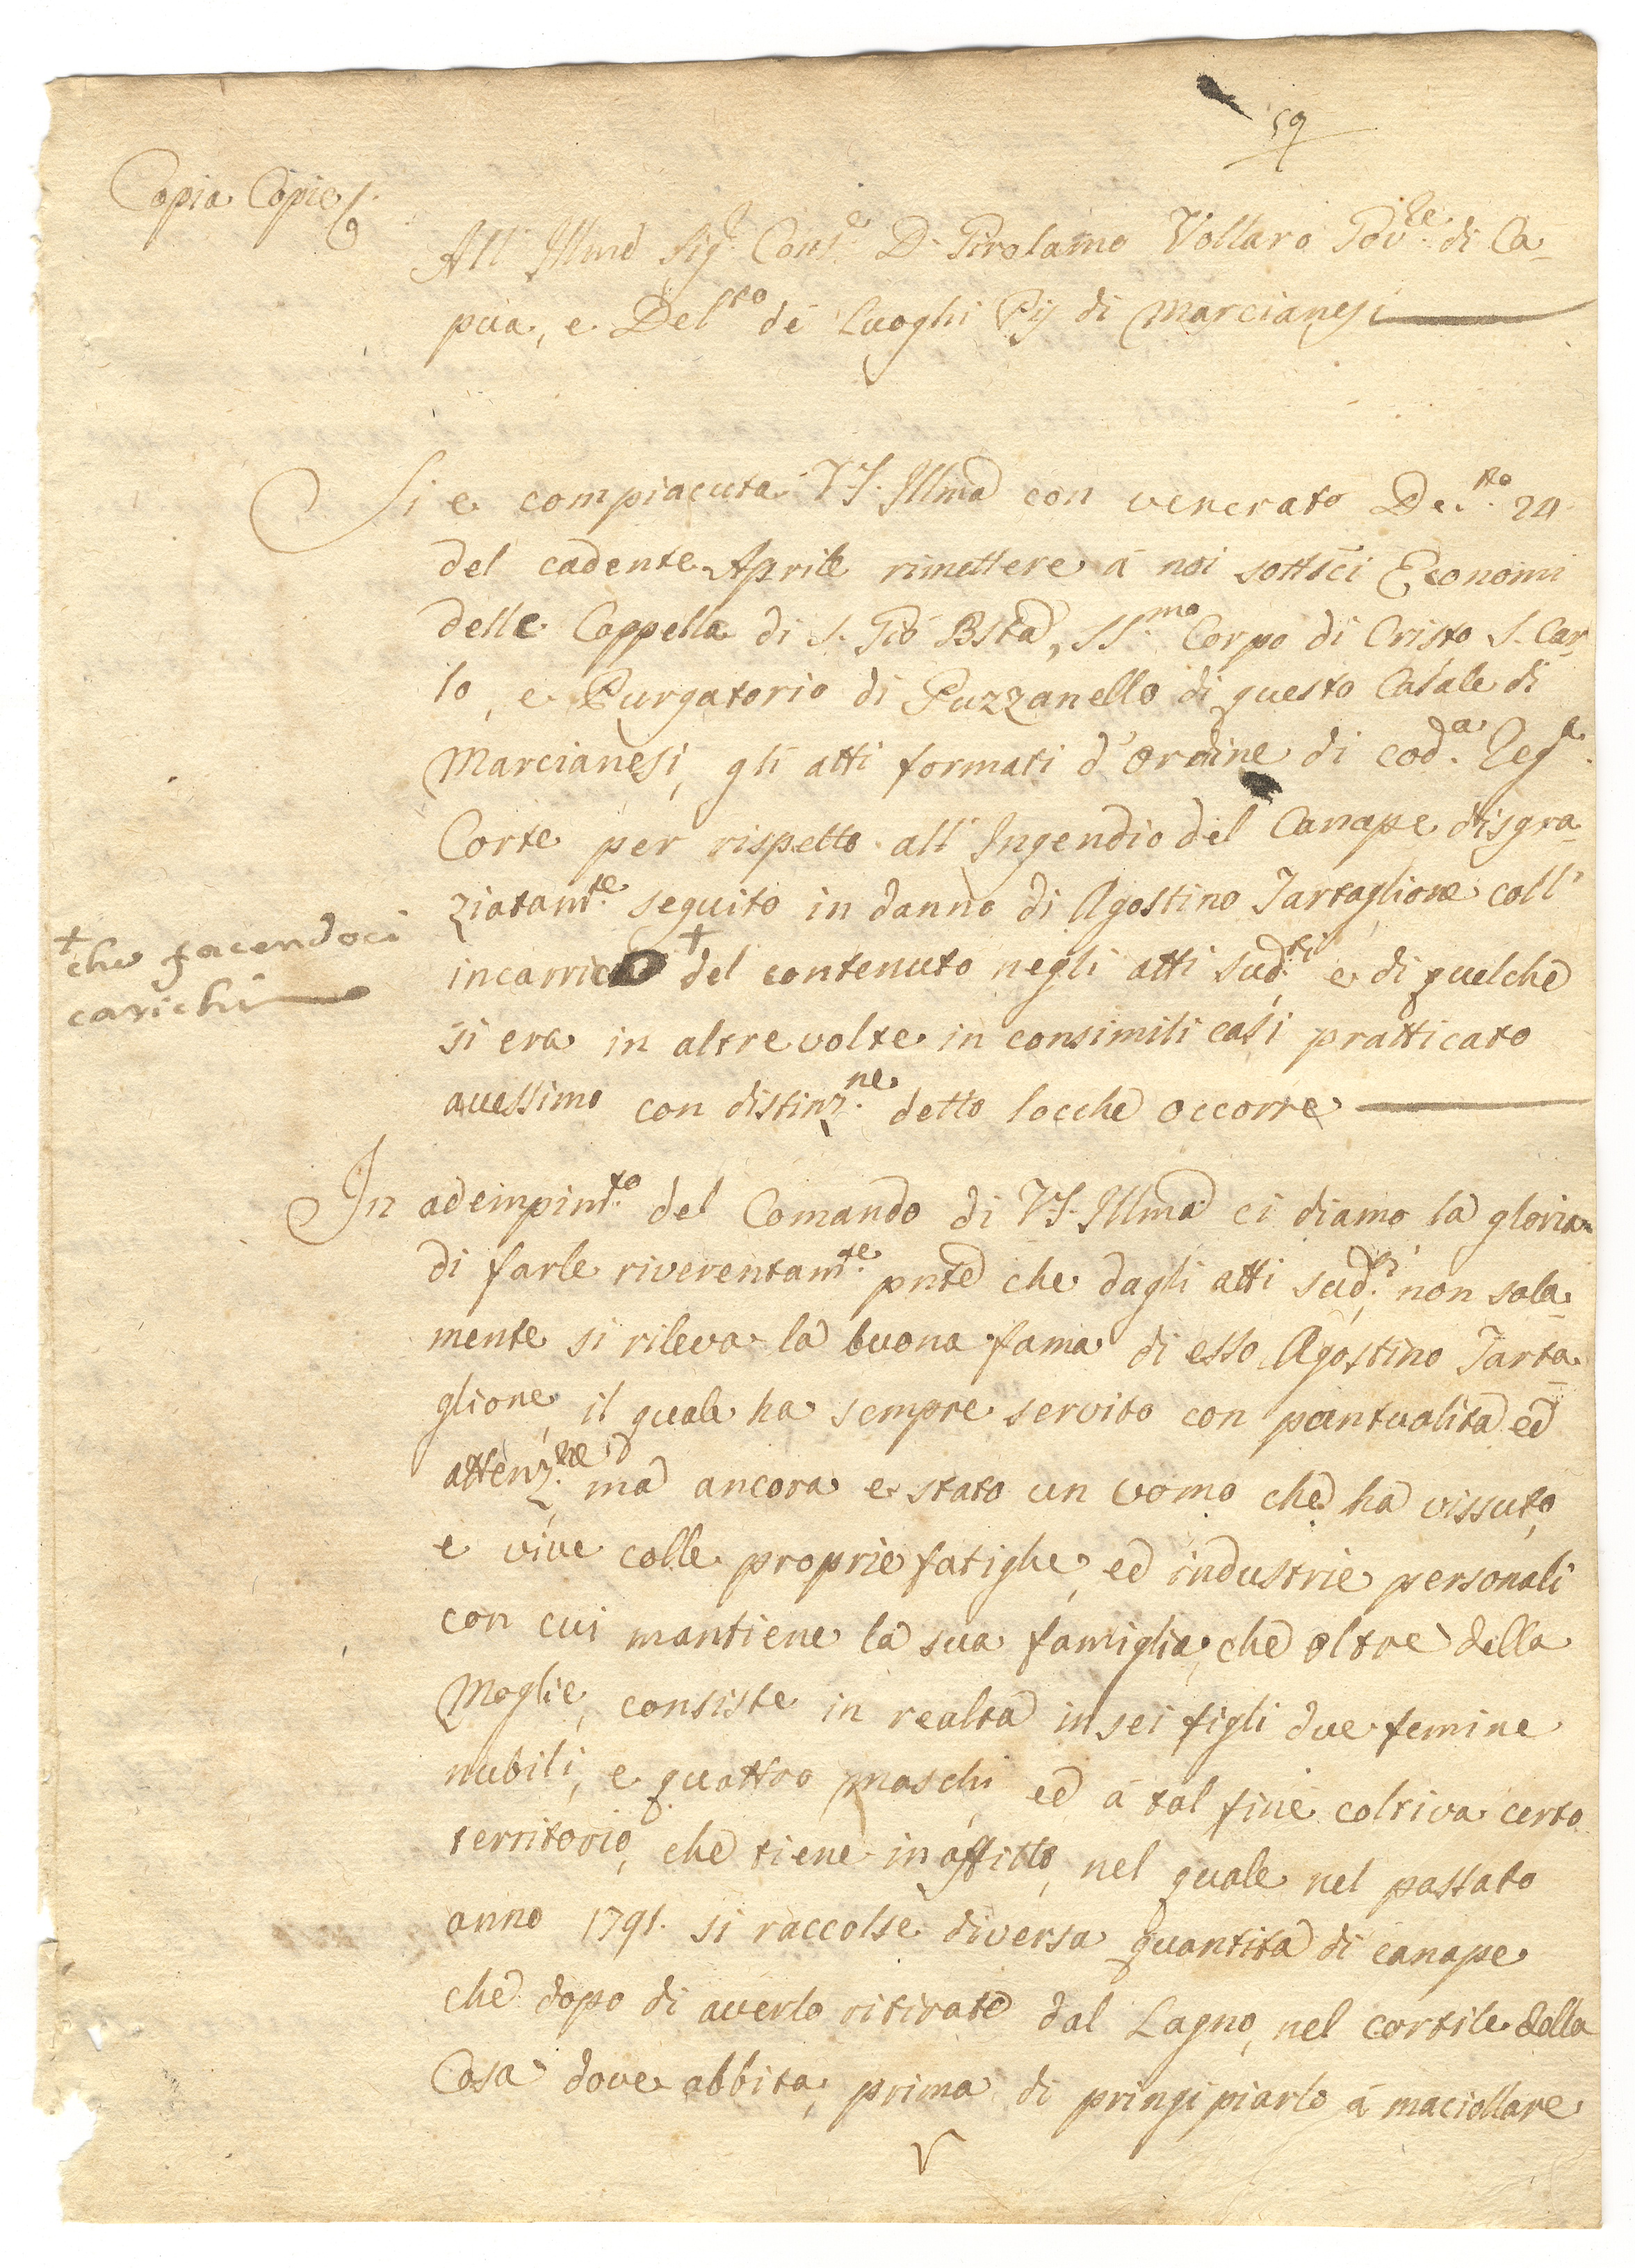 59
Copia Copie
All' Illmo Sig.r Cons.e D. Girolamo Vollaro Gov.re di Ca-
pua, e Del.to de Luoghi Pij di Marcianesi
Si e compiaciuta V.S. Illma con venerato De.to 24
del cadente Aprile rimettere à noi sottsti Economi
delle Cappelle di S. Gio Bsta, SS.mo Corpo di Cristo S. Car-
lo, e Purgatorio di Puzzanello di questo Casale di
Marcianesi, gli atti formati d'ordine di cod.a Reg.a
Corte per rispetto all' Ingendio del Canape disgra-
ziatam.te seguito in danno di Agostino Tartaglione coll'
incarrico + del contenuto negli atti sud.ti e di quelche
+ che facendoci
carichi
si era in altre volte in consimili casi pratticato
avessimo con distinz.ne detto locche occorre
In adempim.to del Comando di V.S. Illma ci diamo la gloria
di farle riverentam.te pnte che dagli atti sud.ti non sola-
mente si rileva la buona fama di esso Agostino Tarta-
glione, il quale ha sempre servito con puntualita ed
attenz.ne, ma ancora e stato un uomo che ha vissuto,
e vive colle proprie fatighe, ed industrie personali
con cui mantiene la sua famiglia, che oltre della
Moglie, consiste in realta in sei figli due femine
nubili, e quattro maschi, ed à tal fine coltiva certo
territorio, che tiene in affitto, nel quale nel passato
anno 1791. si raccolse diversa quantita di canape
che dopo di averlo ritirato dal Lagno, nel cortile della
Casa dove abbita, prima di pringipiarlo à maciollare